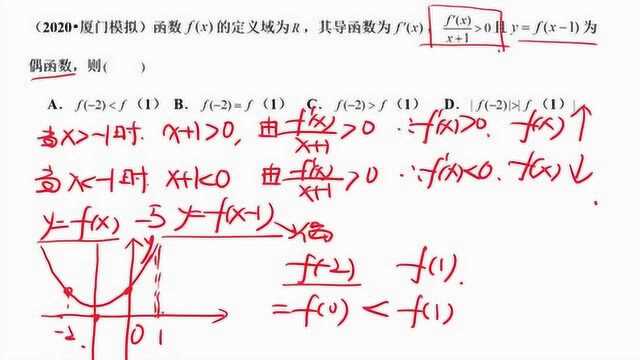 (2020•厦门模拟)函数f(x)的定义域为R，其导函数为f′(x)，f′(x)/(x+1)>0且y=f(x−1)为
偶函数，则(    )
A．f(−2)<f（1） B．f(−2)=f（1） C．f(−2)>f（1） D．|f(−2)|>|f（1）|
当x>-1时. x+1>0, 由f′(x)/(x+1)>0 ∴f′(x)>0. f(x)↑
当x<-1时 x+1<0 由f′(x)/(x+1)>0 ∴f′(x)<0. f(x)↓
y=f(x) 与 y=f(x-1)
y
f(-2) f(1)
=f(0) < f(1)
-2 0 1